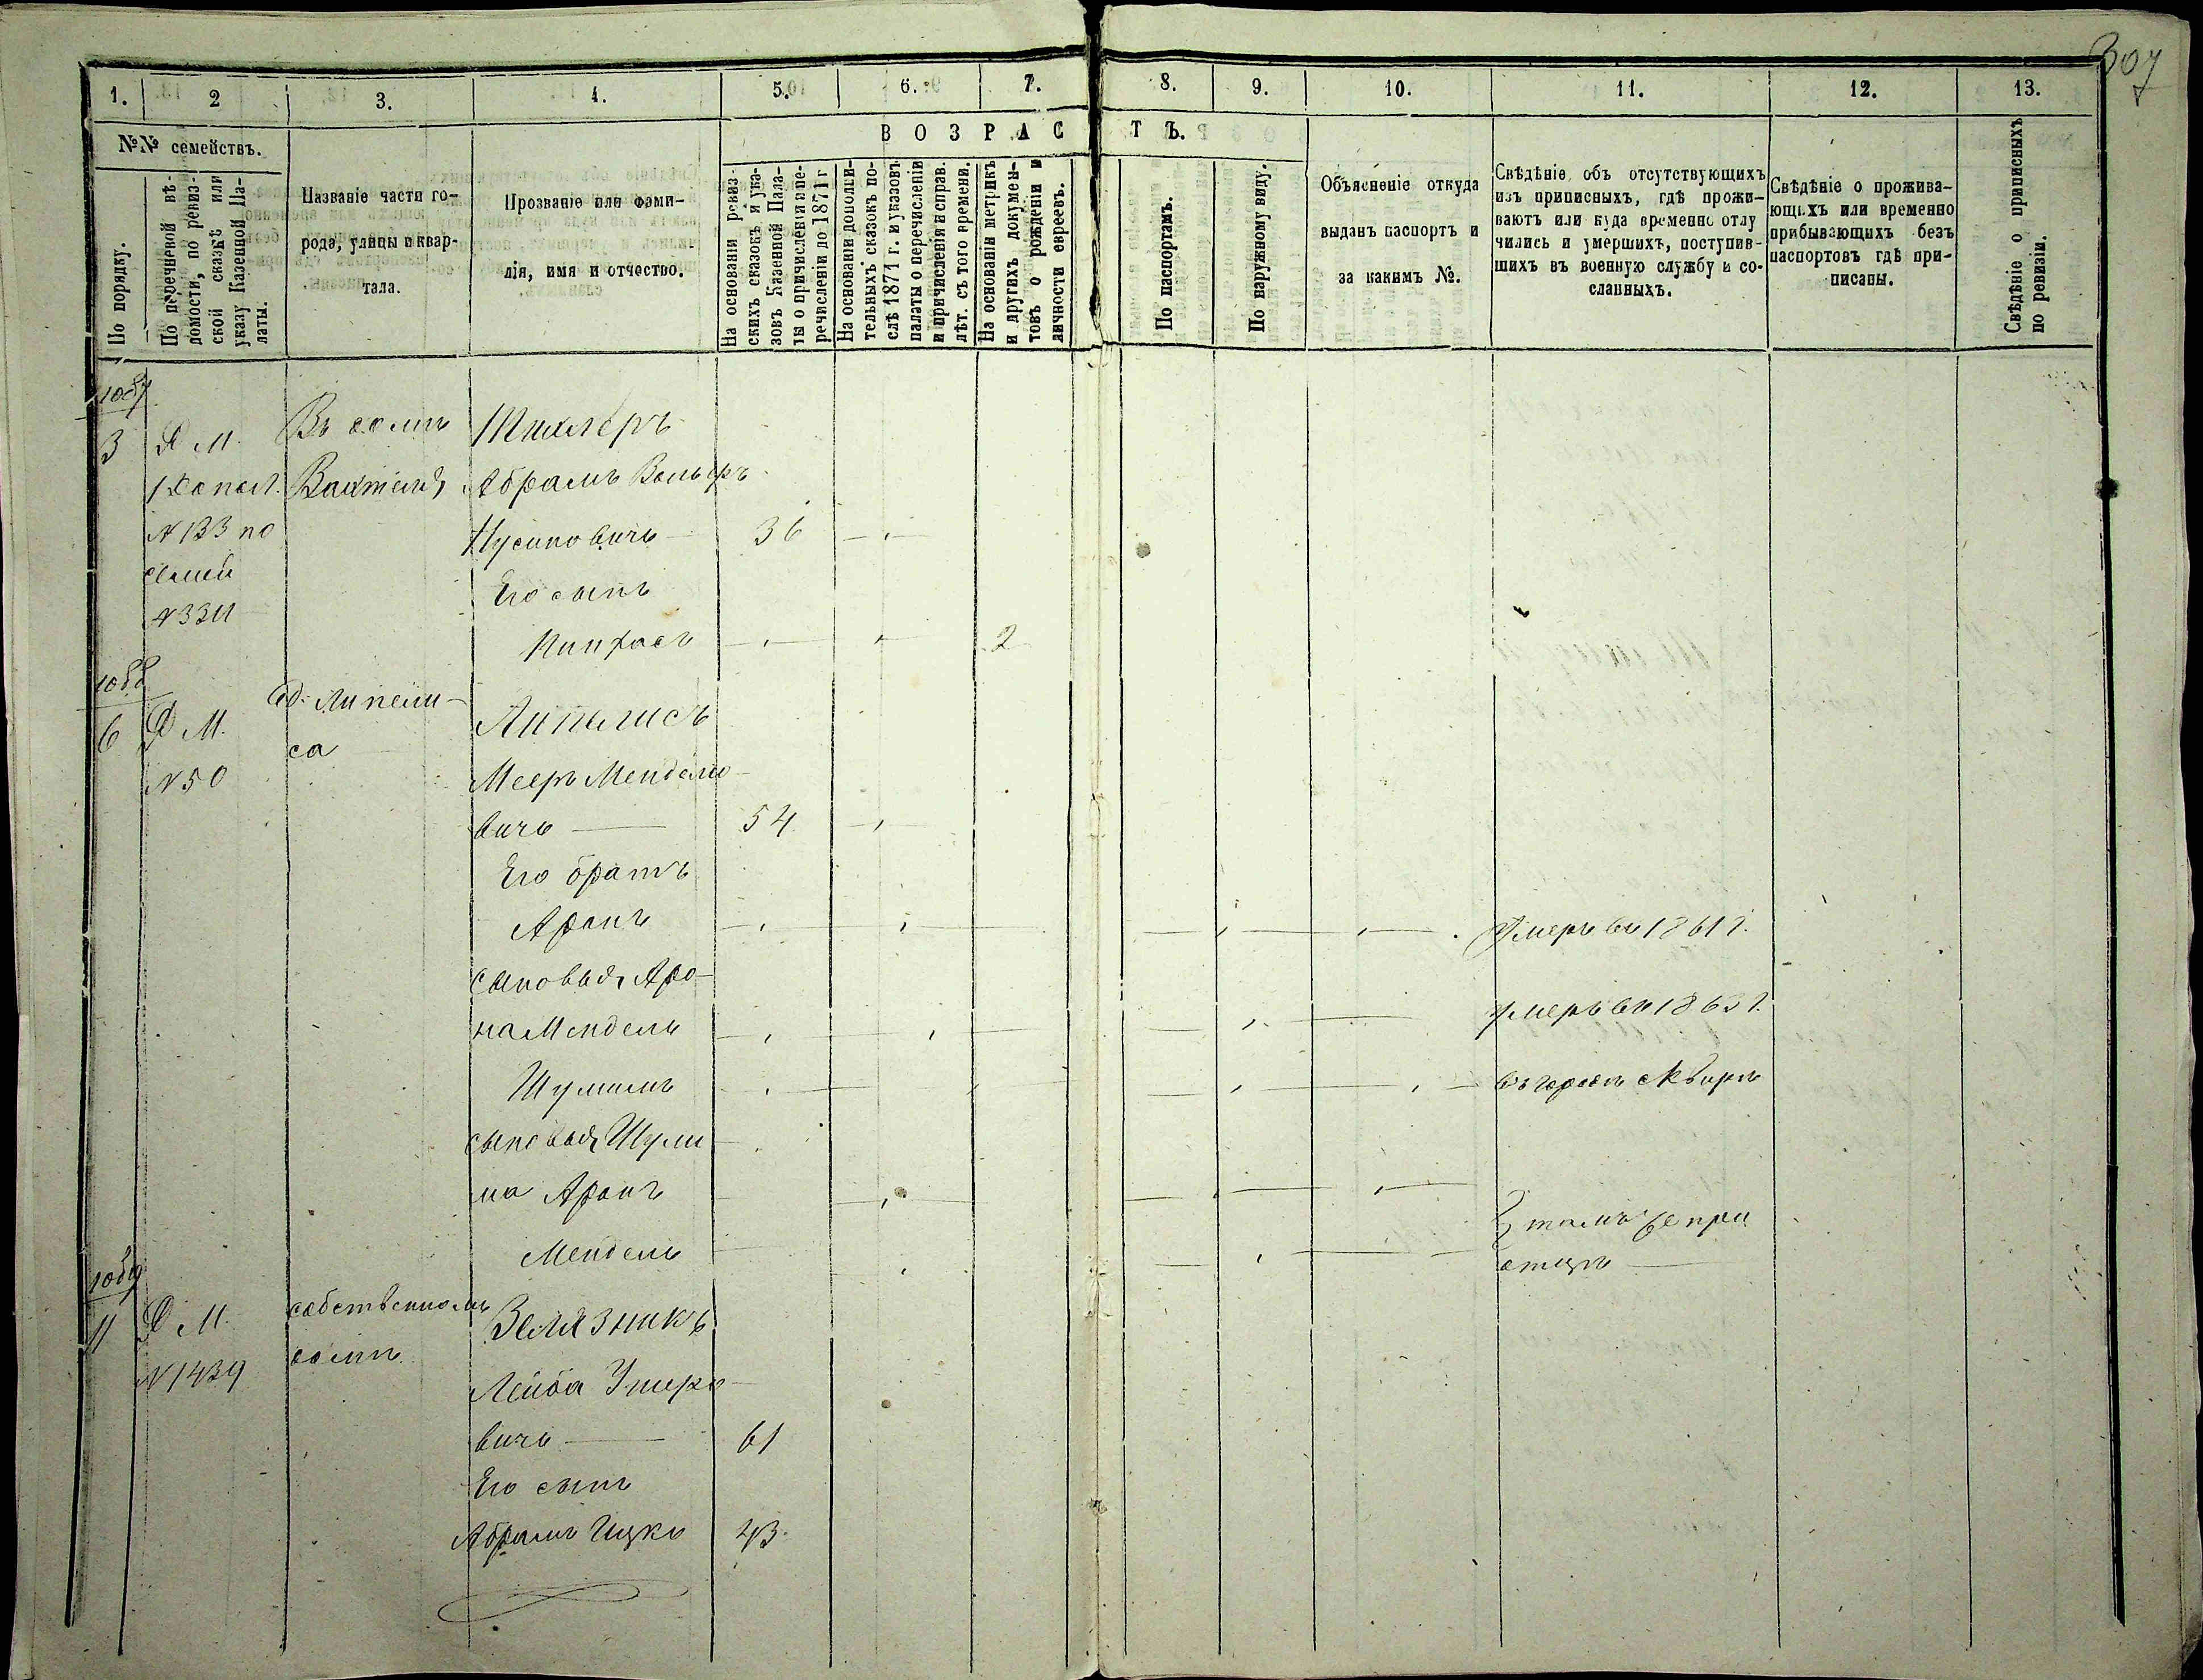 307
1. 2 3. 4. 5. 6. 7. 8. 9. 10. 11. 12. 13.
№№ семействъ.
ВОЗРАСТЪ.
По порядку.
По перечневой вѣ-
домости, по ревиз-
ской сказкѣ или
указу Казенной Па-
латы.
Названіе части го-
рода, улицы и квар-
тала.
Прозваніе или фами-
лія, имя и отчество.
На основаніи ревиз-
скихъ сказокъ и ука-
зовъ Казенной Пала-
ты о причисленіи и пе-
речисленіи до 1871 г
На основаніи дополни-
тельныхъ сказокъ по-
слѣ 1871 г. и указовъ
палаты о перечисленіи
и причисленія и справ.
лѣт. съ того времени.
На основаніи метрикъ
и другихъ докумен-
товъ о рожденіи и
личности евреевъ.
По паспортамъ.
По наружному виду.
Объясненіе откуда
выданъ паспортъ и
за какимъ №.
Свѣдѣніе объ отсутствующихъ
изъ приписныхъ, гдѣ прожи-
ваютъ или куда временно отлу
чились и умершихъ, поступив-
шихъ въ военную службу и со-
сланныхъ.
Свѣдѣніе о прожива-
ющихъ или временно
прибывающихъ безъ
паспортовъ гдѣ при-
писаны.
Свѣдѣніе о приписныхъ
по ревизіи.
1087
3 Д М. Въ домѣ
Абрамъ Вольфъ
N 133 по
Нусиновичъ — 36
семей
Его сынъ
N 334
Пинхасъ 2
1088
6 Д М. Д. Липели-
са Липелисъ
N 50 Мееръ Мендело-
вичъ — 54
Его братъ
Аронъ Умеръ въ 1861 г.
сыновья Аро-
на Мендель умеръ въ 1863 г.
Шулимъ въ городѣ Сквирѣ
сыновья Шули
ма Аронъ
Мендель
тамъ же при
отцѣ
1089
11 Д М. собственномъ
домѣ
Зелязникъ
N 1439
Лейба Ушеро-
вичъ — 61
Его сынъ
Абрамъ Ицко 43